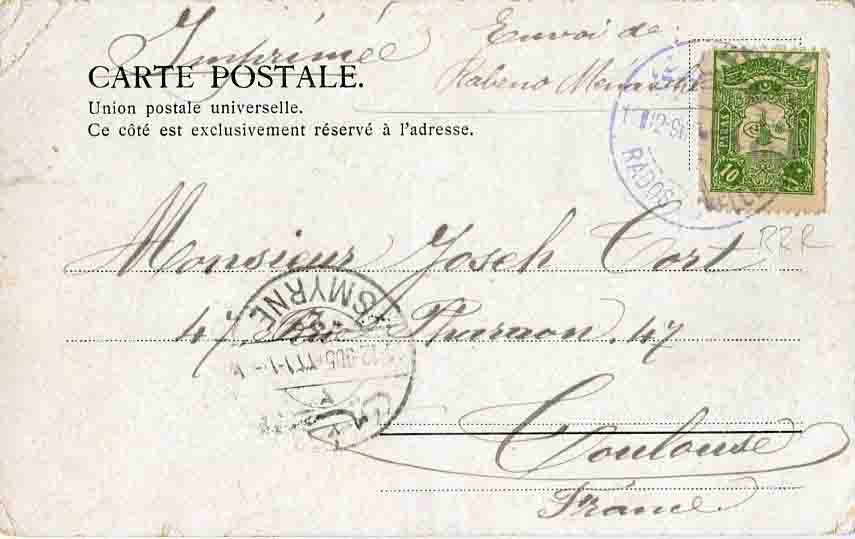 Imprimé
Envoi de:
Rabeno
CARTE POSTALE.
Union postale universelle.
Ce côté est exclusivement réservé à l'adresse.
PARAS
10
RRR
Monsieur Joseh Cort
47, Rue Pharaon, 47
SMYRNE
Toulouse
France